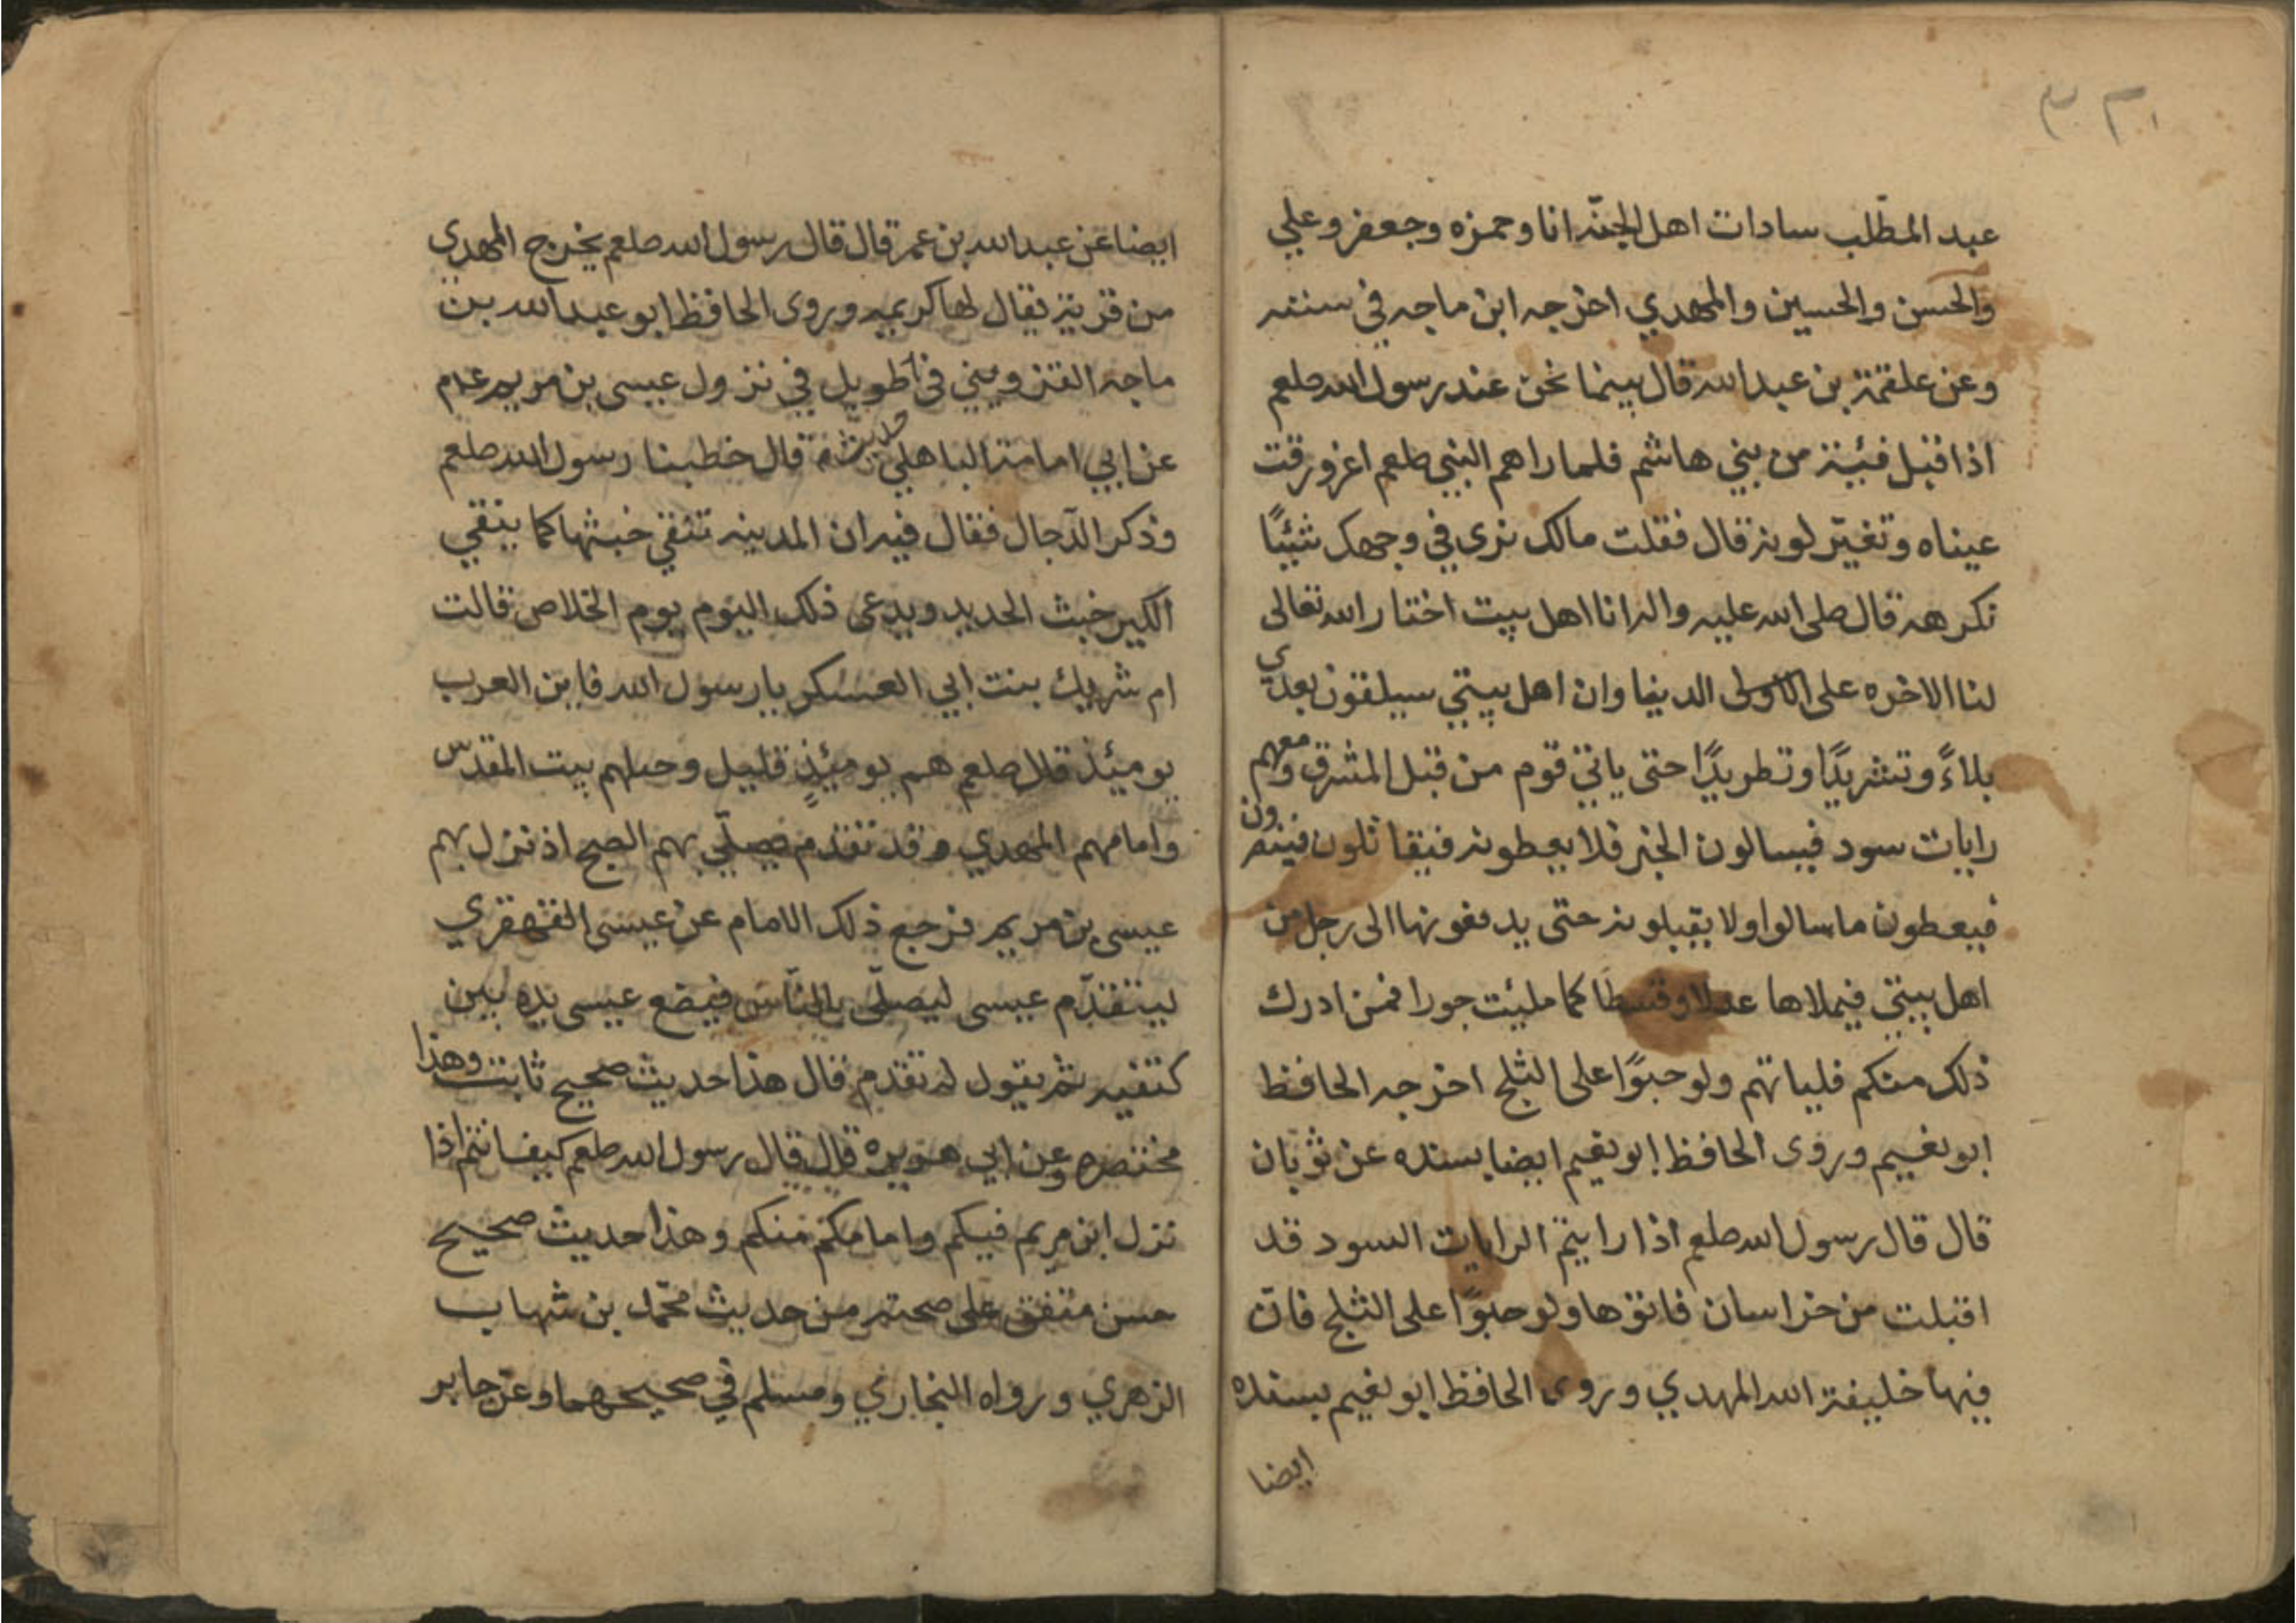 عبد المطّلب سادات اهل الجنّه انا وحمزه وجعفر وعلي
والحسن والحسين والمهدي اخرجه ابن ماجه في سننه
وعن علقمة بن عبدالله قال بينما نحن عند رسول الله صلعم
اذا قبل فئية من بني هاشم فلما راهم النبي صلعم اغرورقت
عيناه وتغيّر لونه قال فقلت مالك نرى في وجهك شيئًا
نكرهه قال صلى الله عليه واله انا اهل بيت اختار الله تعالى
لنا الاخره على الدنيا وان اهل بيتي سيلقون بعدي
بلاءً وتشريدًا وتطريدًا حتى ياتي قوم من قبل المشرق ومعهم
رايات سود فيسالون الخبز فلا يعطونه فيقاتلون فينصرون
فيعطون ما سالوا ولا يقبلونه حتى يدفعونها الى رجل من
اهل بيتي فيملاها عدلا وقسطا كما ملئت جورا فمن ادرك
ذلك منكم فلياتهم ولو حبوًا على الثلج اخرجه الحافظ
ابو نعيم وروى الحافظ ابو نعيم ايضا بسنده عن ثوبان
قال قال رسول الله صلعم اذا رايتم الرايات السود قد
اقبلت من خراسان فاتوها ولو حبوًا على الثلج فانّ
فيها خليفة الله المهدي وروى الحافظ ابو نعيم بسنده
ايضا
ايضا عن عبدالله بن عمر قال قال رسول الله صلعم يخرج المهدي
من قرية يقال لها كريمه وروى الحافظ ابو عبدالله بن
ماجه القزويني في حديث طويل في نزول عيسى بن مريم عم
عن ابي امامة الباهلي قال خطبنا رسول الله صلعم
وذكر الدّجال فقال فيه ان المدينه تنقي خبثها كما ينقي
الكير خبث الحديد ويدعى ذلك اليوم يوم الخلاص قالت
ام شريك بنت ابي العسكر يا رسول الله فاين العرب
يومئذ قال صلعم هم يومئذٍ قليل وجلهم ببيت المقدس
وامامهم المهدي وقد تقدم يصلّي بهم الصبح اذ نزل بهم
عيسى بن مريم فرجع ذلك الامام عن عيسى القهقري
ليتقدّم عيسى ليصلّي بالنّاس فيضع عيسى يده بين
كتفيه ثم يقول له تقدم قال هذا حديث صحيح ثابت وهذا
مختصره وعن ابي هريره قال قال رسول الله صلعم كيف انتم اذا
نزل ابن مريم فيكم وامامكم منكم وهذا حديث صحيح
حسن متفق على صحته من حديث محمّد بن شهاب
الزهري ورواه البخاري ومسلم في صحيحهما وعن جابر